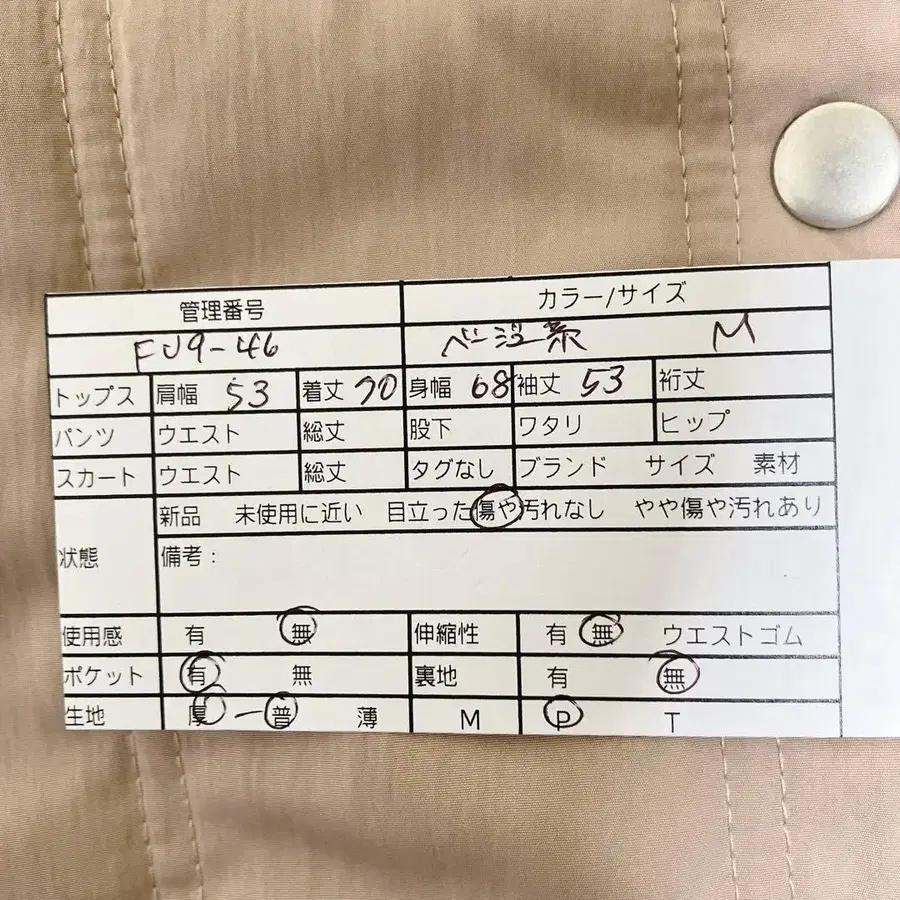 管理番号 カラー/サイズ
FU9-46 ベージュ系 M
トップス 肩幅 53 着丈 70 身幅 68 袖丈 53 裄丈
パンツ ウエスト 総丈 股下 ワタリ ヒップ
スカート ウエスト 総丈 タグなし ブランド サイズ 素材
新品 未使用に近い 目立った傷や汚れなし やや傷や汚れあり
状態 備考：
使用感 有 無 伸縮性 有 無 ウエストゴム
ポケット 有 無 裏地 有 無
生地 厚 ー 普 薄 M P T